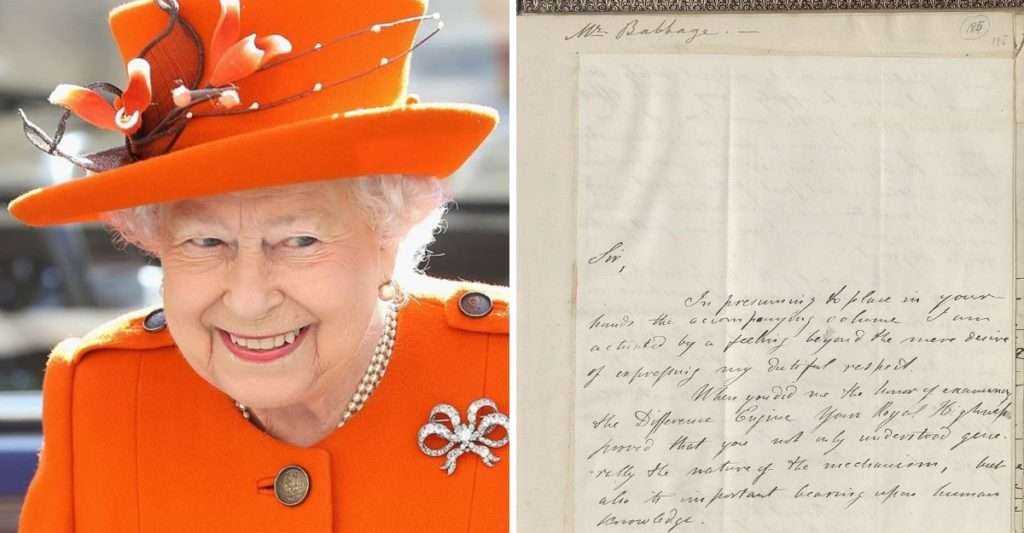 Mr Babbage. —
186
195
Sir,
In presuming to place in your
hands the accompanying volume I am
actuated by a feeling beyond the mere desire
of expressing my dutiful respect.
When you did me the honor of examining
the Difference Engine Your Royal Highness
proved that you not only understood gene-
rally the nature of the mechanism, but
also its important bearing upon human
knowledge.